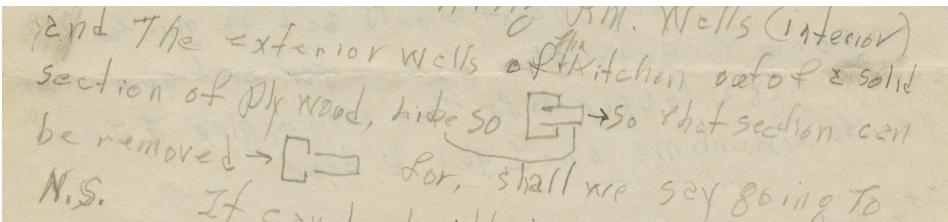 Rm. Walls (interior)
and The exterior walls of the Kitchen out of a solid
section of Ply wood, hide so → So that section can
be removed → for, shall we say going To
N.S. If